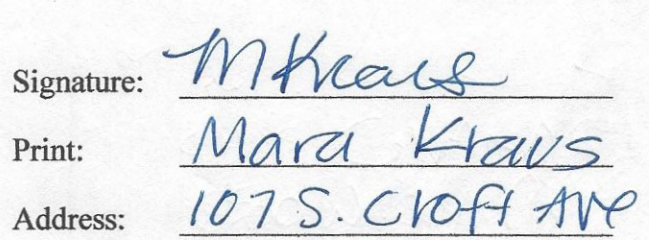 Signature: MKraus
Print: Mara Kraus
Address: 107 S. Croft Ave